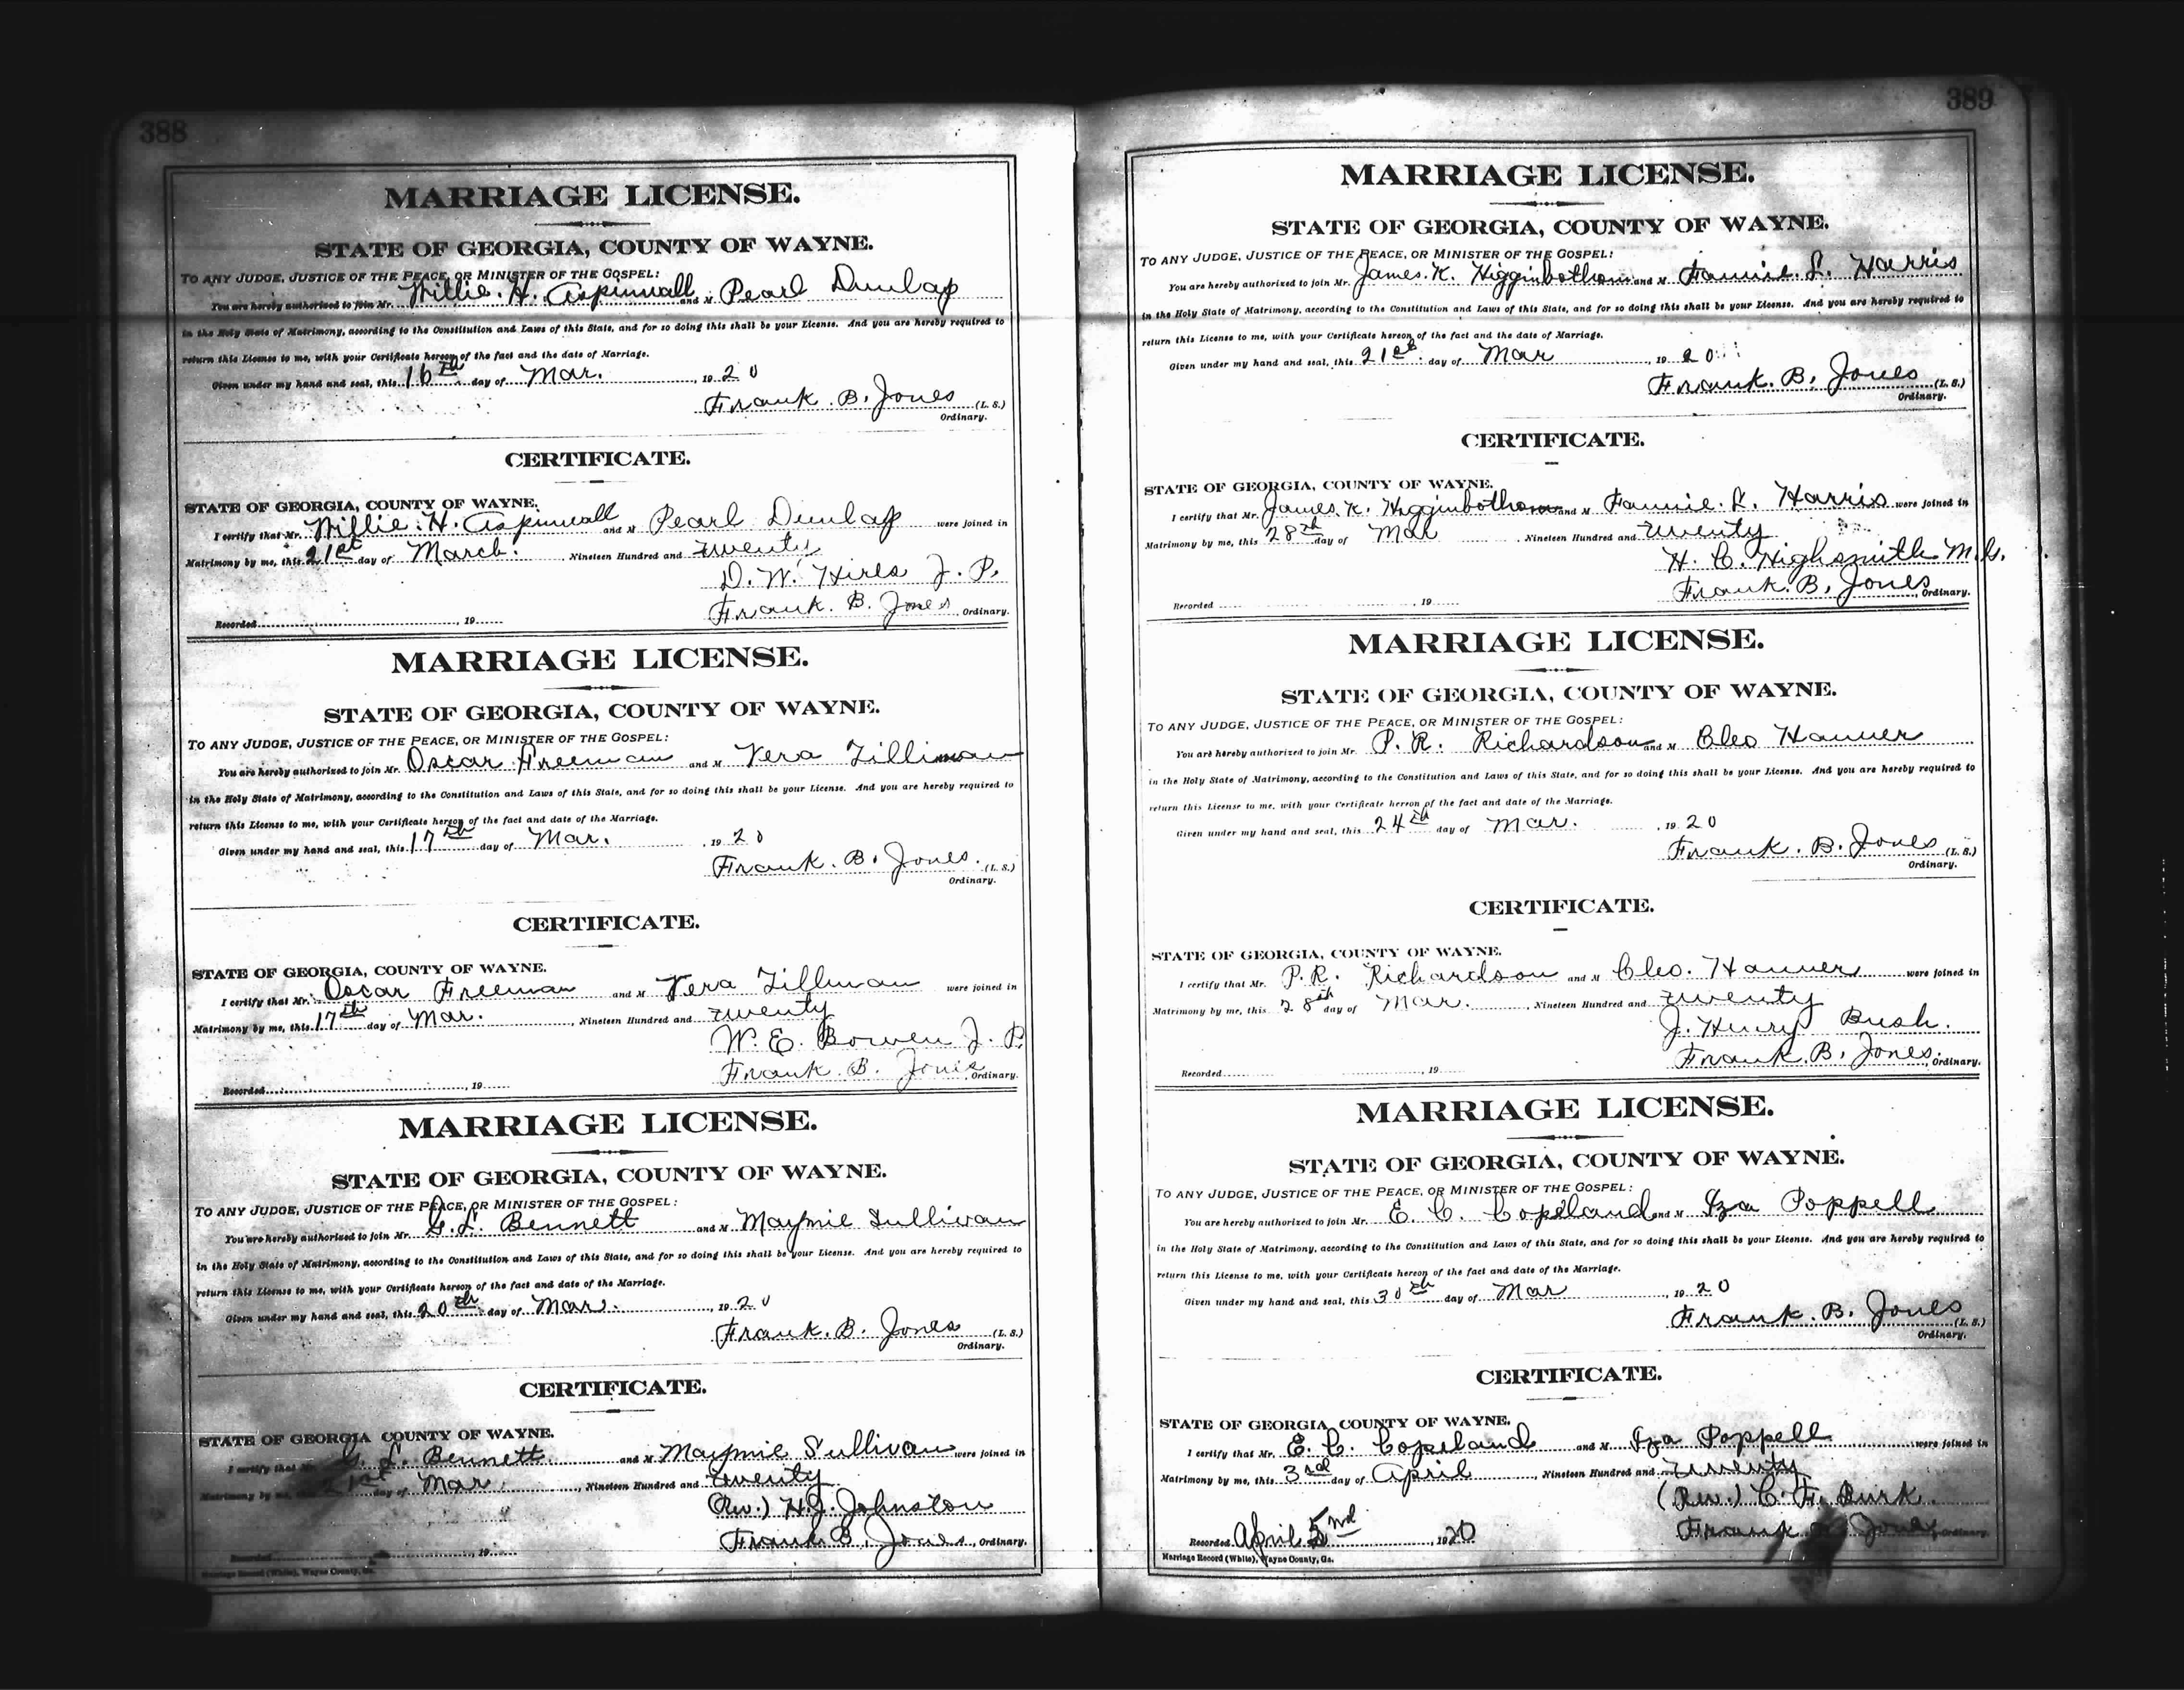 388
MARRIAGE LICENSE.
STATE OF GEORGIA, COUNTY OF WAYNE.
TO ANY JUDGE, JUSTICE OF THE PEACE, OR MINISTER OF THE GOSPEL:
You are hereby authorized to join Mr. Willie. H. Aspinwall and M Pearl Dunlap
in the Holy State of Matrimony, according to the Constitution and Laws of this State, and for so doing this shall be your License. And you are hereby required to
return this License to me, with your Certificate hereon of the fact and the date of Marriage.
Given under my hand and seal, this 16th day of Mar. , 19 20
Frank. B. Jones (L. S.)
Ordinary.
CERTIFICATE.
STATE OF GEORGIA, COUNTY OF WAYNE.
I certify that Mr. Willie. H. Aspinwall and M Pearl Dunlap were joined in
Matrimony by me, this 21st day of March. Nineteen Hundred and Twenty
D. W. Hires J. P.
Frank. B. Jones, Ordinary.
Recorded , 19
MARRIAGE LICENSE.
STATE OF GEORGIA, COUNTY OF WAYNE.
TO ANY JUDGE, JUSTICE OF THE PEACE, OR MINISTER OF THE GOSPEL:
You are hereby authorized to join Mr. Oscar Freeman and M Vera Tillman
in the Holy State of Matrimony, according to the Constitution and Laws of this State, and for so doing this shall be your License. And you are hereby required to
return this License to me, with your Certificate hereon of the fact and date of the Marriage.
Given under my hand and seal, this 17th day of Mar. , 19 20
Frank. B. Jones. (L. S.)
Ordinary.
CERTIFICATE.
STATE OF GEORGIA, COUNTY OF WAYNE.
I certify that Mr. Oscar Freeman and M Vera Tillman were joined in
Matrimony by me, this 17th day of Mar. , Nineteen Hundred and Twenty
W. E. Bowen J. P.
Frank. B. Jones, Ordinary.
Recorded , 19
MARRIAGE LICENSE.
STATE OF GEORGIA, COUNTY OF WAYNE.
TO ANY JUDGE, JUSTICE OF THE PEACE, OR MINISTER OF THE GOSPEL:
You are hereby authorized to join Mr. G. L. Bennett and M Maymie Sullivan
in the Holy State of Matrimony, according to the Constitution and Laws of this State, and for so doing this shall be your License. And you are hereby required to
return this License to me, with your Certificate hereon of the fact and date of the Marriage.
Given under my hand and seal, this 20th day of Mar. , 19 20
Frank. B. Jones (L. S.)
Ordinary.
CERTIFICATE.
STATE OF GEORGIA COUNTY OF WAYNE.
I certify that Mr. G. L. Bennett and M Maymie Sullivan were joined in
Matrimony by me, this 21st day of Mar , Nineteen Hundred and Twenty
(Rev.) H. J. Johnston
Frank B. Jones, Ordinary.
Recorded , 19
Marriage Record (White), Wayne County, Ga.
389
MARRIAGE LICENSE.
STATE OF GEORGIA, COUNTY OF WAYNE.
TO ANY JUDGE, JUSTICE OF THE PEACE, OR MINISTER OF THE GOSPEL:
You are hereby authorized to join Mr. James. K. Higginbotham and M Fannie. L. Harris
in the Holy State of Matrimony, according to the Constitution and Laws of this State, and for so doing this shall be your License. And you are hereby required to
return this License to me, with your Certificate hereon of the fact and the date of Marriage.
Given under my hand and seal, this 21st day of Mar , 19 20
Frank. B. Jones (L. S.)
Ordinary.
CERTIFICATE.
STATE OF GEORGIA, COUNTY OF WAYNE.
I certify that Mr. James. K. Higginbotham and M Fannie. L. Harris were joined in
Matrimony by me, this 28th day of Mar , Nineteen Hundred and Twenty
H. C. Highsmith M. G.
Frank. B. Jones, Ordinary.
Recorded , 19
MARRIAGE LICENSE.
STATE OF GEORGIA, COUNTY OF WAYNE.
TO ANY JUDGE, JUSTICE OF THE PEACE, OR MINISTER OF THE GOSPEL:
You are hereby authorized to join Mr. P. R. Richardson and M Cleo Hanner
in the Holy State of Matrimony, according to the Constitution and Laws of this State, and for so doing this shall be your License. And you are hereby required to
return this License to me, with your Certificate hereon of the fact and date of the Marriage.
Given under my hand and seal, this 24th day of Mar. , 19 20
Frank. B. Jones (L. S.)
Ordinary.
CERTIFICATE.
STATE OF GEORGIA, COUNTY OF WAYNE.
I certify that Mr. P. R. Richardson and M Cleo. Hanner were joined in
Matrimony by me, this 28th day of Mar. , Nineteen Hundred and Twenty
J. Henry Bush.
Frank. B. Jones, Ordinary.
Recorded , 19
MARRIAGE LICENSE.
STATE OF GEORGIA, COUNTY OF WAYNE.
TO ANY JUDGE, JUSTICE OF THE PEACE, OR MINISTER OF THE GOSPEL:
You are hereby authorized to join Mr. E. C. Copeland and M Iza Poppell
in the Holy State of Matrimony, according to the Constitution and Laws of this State, and for so doing this shall be your License. And you are hereby required to
return this License to me, with your Certificate hereon of the fact and date of the Marriage.
Given under my hand and seal, this 30th day of Mar , 19 20
Frank. B. Jones (L. S.)
Ordinary.
CERTIFICATE.
STATE OF GEORGIA COUNTY OF WAYNE.
I certify that Mr. E. C. Copeland and M Iza Poppell were joined in
Matrimony by me, this 3rd day of April , Nineteen Hundred and Twenty
(Rev.) C. F. Burk.
Frank B. Jones, Ordinary.
Recorded April 5nd , 1920
Marriage Record (White), Wayne County, Ga.